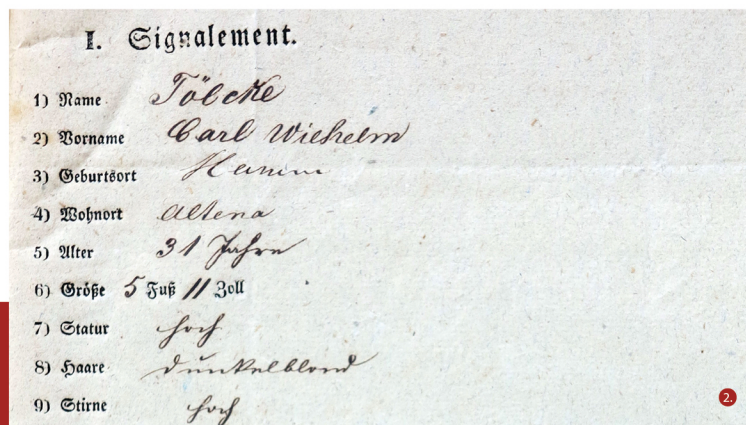 I. Signalement.
1) Name Tölcke
2) Vorname Carl Wielhelm
3) Geburtsort Hamm
4) Wohnort Altena
5) Alter 31 Jahre
6) Größe 5 Fuß 11 Zoll
7) Statur hoch
8) Haare dunkelblond
9) Stirne hoch
2.